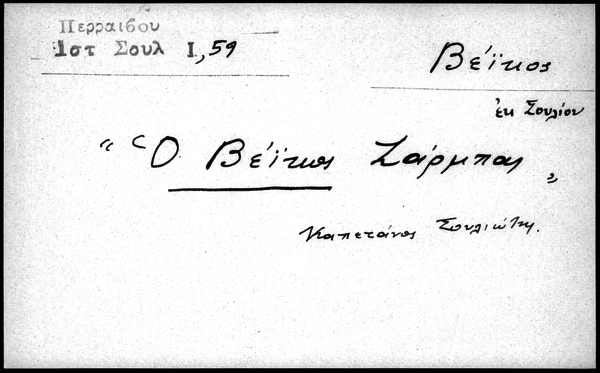 Περραιβου
Ιστ Σουλ Ι, 59
Βέϊκος
ἐκ Σουλίου
"Ὁ Βέϊκος Ζάρμπας"
Καπετάνος Σουλιώτης.